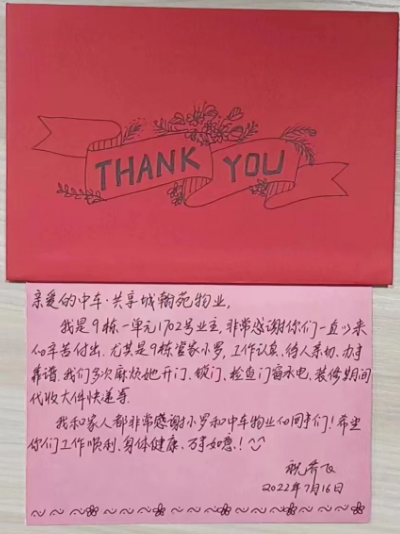 THANK YOU
亲爱的中车·共享城翰苑物业,
我是9栋一单元1702号业主,非常感谢你们一直以来
的辛苦付出,尤其是9栋管家小罗,工作认真、待人亲切、办事
靠谱,我们多次麻烦他开门、锁门、检查门窗水电、装修期间
代收大件快递等.
我和家人都非常感谢小罗和中车物业的同事们!希望
你们工作顺利、身体健康、万事如意!
祝
2022年7月16日